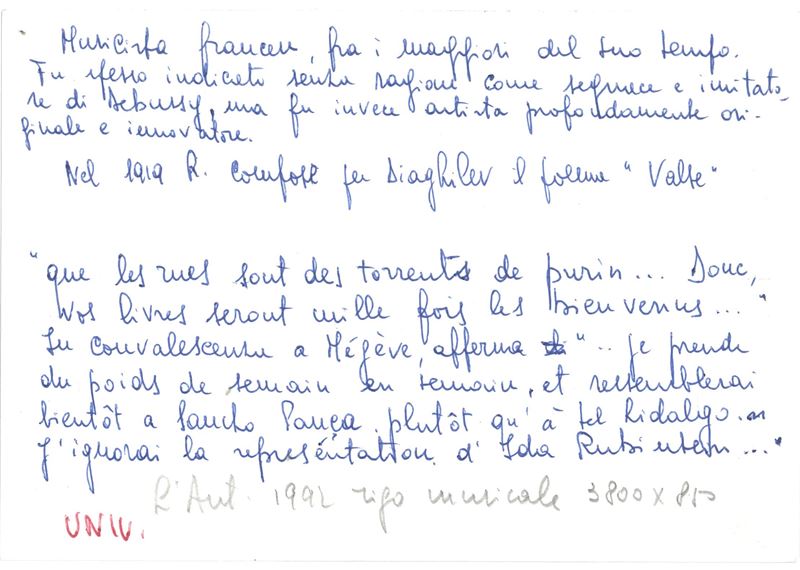 Musicista francese, fra i maggiori del suo tempo.
Fu spesso indicato senza ragione come seguace e imitato-
re di Debussy, ma fu invece artista profondamente ori-
ginale e innovatore.
Nel 1919 R. compose per Diaghilev il poema "Valse"
"que les rues sont des torrents de purin... Donc,
vos livres seront mille fois les bienvenus..."
In convalescenza a Mégève, afferma ".. je prends
du poids de semain en semain, et ressemblerai
bientôt a Sancho Pança plutôt qu'à tel hidalgo...
J'ignorai la représentation d'Ida Rubinstein..."
L'Aut. 1992 rigo musicale 3800 x 850
UNIV.